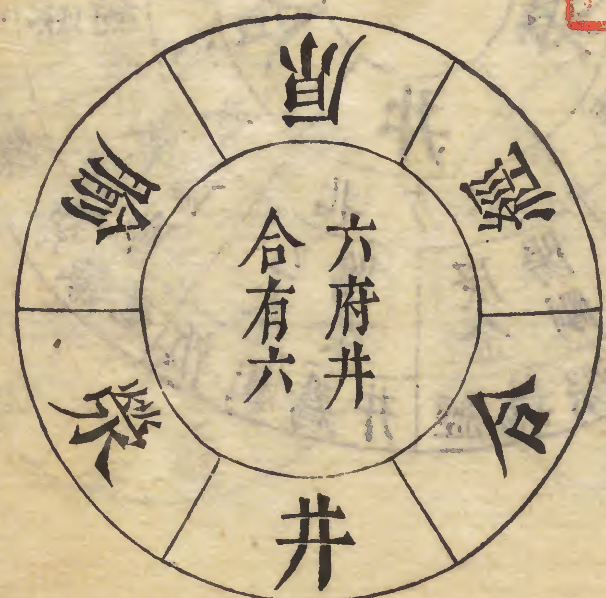 六府井
合有六
井
榮
俞
原
經
合